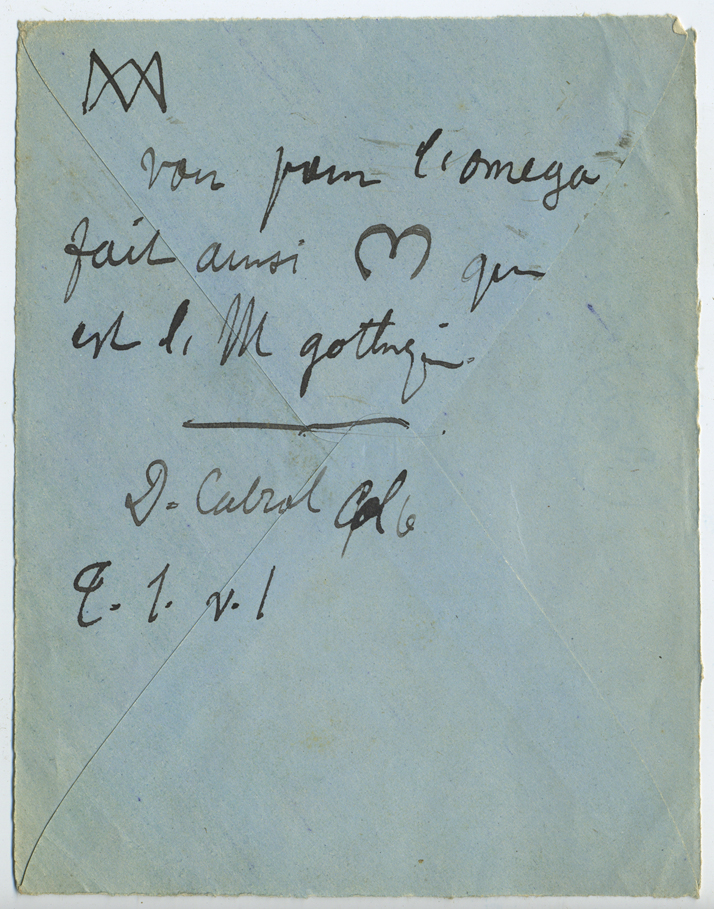 voir pour l'omega
fait ainsi ო qui
est le M gothique.
D. Cabrol Col 6
T. 1. v. 1